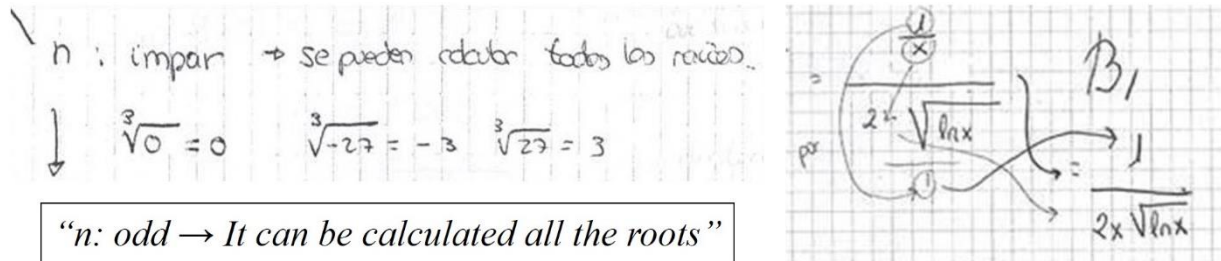 n : impar → se pueden calcular todas las raíces.
∛0 = 0 ∛-27 = -3 ∛27 = 3
“n: odd → It can be calculated all the roots”
1
x
=
2 √lnx
B1
1
1
=
2x √lnx